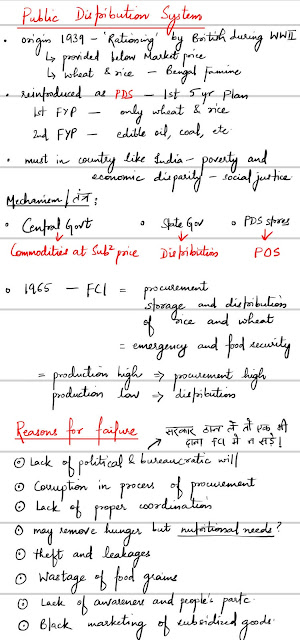 Public Distribution System
• origin 1939 – 'Rationing' by British during WWII
↳ provided below Market price
↳ wheat & rice – Bengal famine
• reintroduced as PDS – 1st 5yr plan
1st FYP – only wheat & rice
2nd FYP – edible oil, coal, etc
• must in country like India – poverty and
economic disparity – social justice.
Mechanism / तंत्र :
◦ Central Govt ◦ State Gov ◦ PDS stores
↓ ↓ ↓
Commodities at Subz price Distribution POS
◦ 1965 – FCI = procurement
storage and distribution
of rice and wheat
= emergency and food security
= production high ⇒ procurement high
production low ⇒ distribution
Reasons for failure
सरकार ठान ले तो एक भी
दाना FCI में न सड़े।
⊙ Lack of political & bureaucratic will
⊙ Corruption in process of procurement
⊙ Lack of proper coordination
⊙ may remove hunger but nutritional needs?
⊙ theft and leakages
⊙ Wastage of food grains
⊙ Lack of awareness and people's partc.
⊙ Black marketing of subsidized goods.